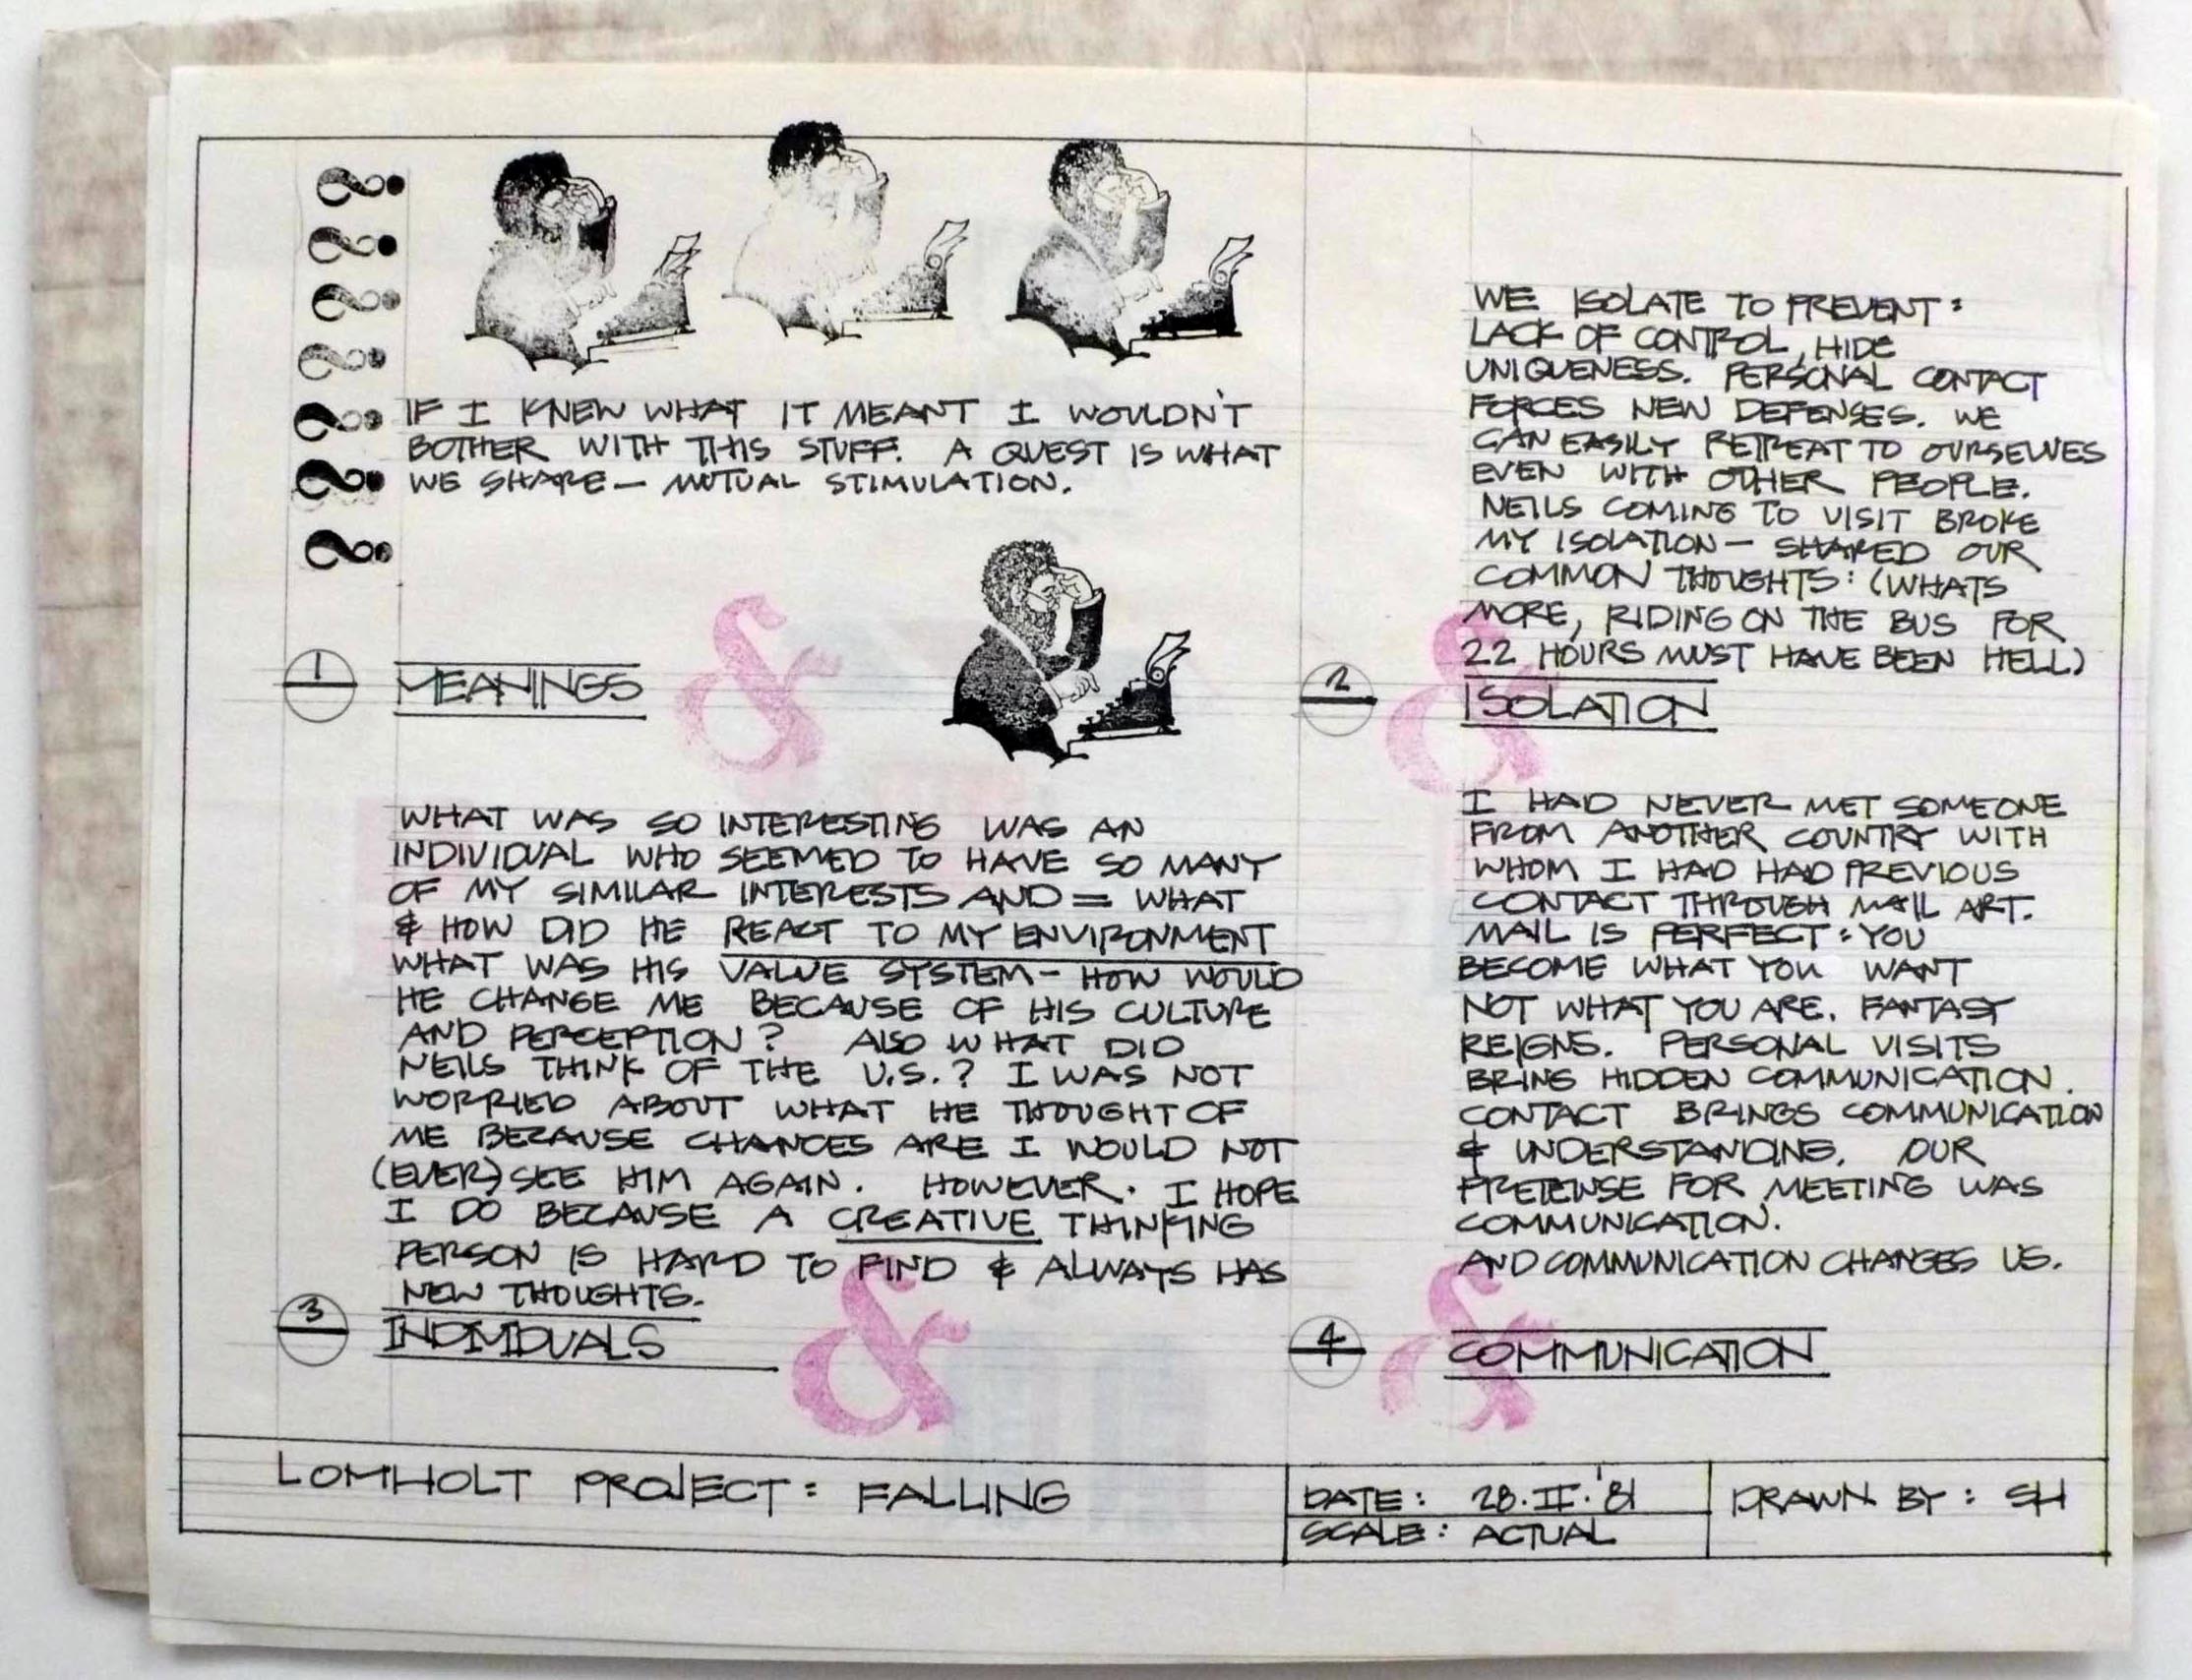 ?
?
?
?
?
?
?
IF I KNEW WHAT IT MEANT I WOULDN'T
BOTHER WITH THIS STUFF. A QUEST IS WHAT
WE SHARE — MUTUAL STIMULATION.
1 MEANINGS
&
WE ISOLATE TO PREVENT:
LACK OF CONTROL, HIDE
UNIQUENESS. PERSONAL CONTACT
FORCES NEW DEFENSES. WE
CAN EASILY RETREAT TO OURSELVES
EVEN WITH OTHER PEOPLE.
NEILS COMING TO VISIT BROKE
MY ISOLATION — SHARED OUR
COMMON THOUGHTS: (WHATS
MORE, RIDING ON THE BUS FOR
22 HOURS MUST HAVE BEEN HELL)
2 ISOLATION
&
WHAT WAS SO INTERESTING WAS AN
INDIVIDUAL WHO SEEMED TO HAVE SO MANY
OF MY SIMILAR INTERESTS AND = WHAT
& HOW DID HE REACT TO MY ENVIRONMENT
WHAT WAS HIS VALUE SYSTEM — HOW WOULD
HE CHANGE ME BECAUSE OF HIS CULTURE
AND PERCEPTION? ALSO WHAT DID
NEILS THINK OF THE U.S.? I WAS NOT
WORRIED ABOUT WHAT HE THOUGHT OF
ME BECAUSE CHANCES ARE I WOULD NOT
(EVER) SEE HIM AGAIN. HOWEVER. I HOPE
I DO BECAUSE A CREATIVE THINKING
PERSON IS HARD TO FIND & ALWAYS HAS
NEW THOUGHTS.
3 INDIVIDUALS
&
I HAD NEVER MET SOMEONE
FROM ANOTHER COUNTRY WITH
WHOM I HAD HAD PREVIOUS
CONTACT THROUGH MAIL ART.
MAIL IS PERFECT: YOU
BECOME WHAT YOU WANT
NOT WHAT YOU ARE. FANTASY
REIGNS. PERSONAL VISITS
BRING HIDDEN COMMUNICATION.
CONTACT BRINGS COMMUNICATION
& UNDERSTANDING. OUR
PRETENSE FOR MEETING WAS
COMMUNICATION.
AND COMMUNICATION CHANGES US.
4 COMMUNICATION
&
LOMHOLT PROJECT: FALLING
DATE: 28·II·'81
SCALE: ACTUAL
DRAWN BY: SH